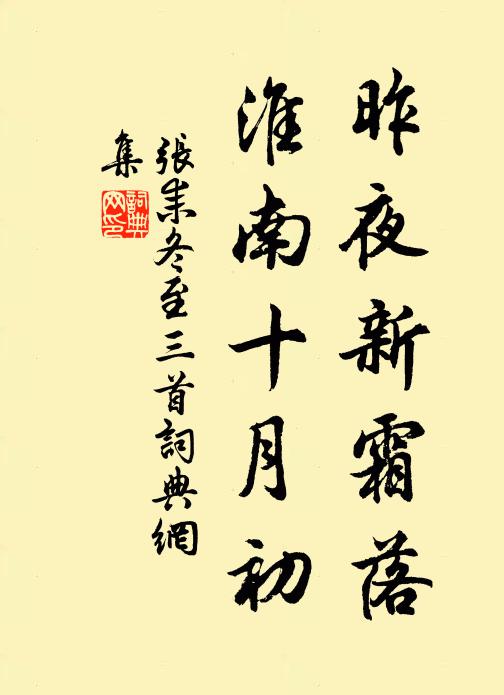 昨夜新霜落
淮南十月初
張耒冬至三首詞典網
集
詞典
网印